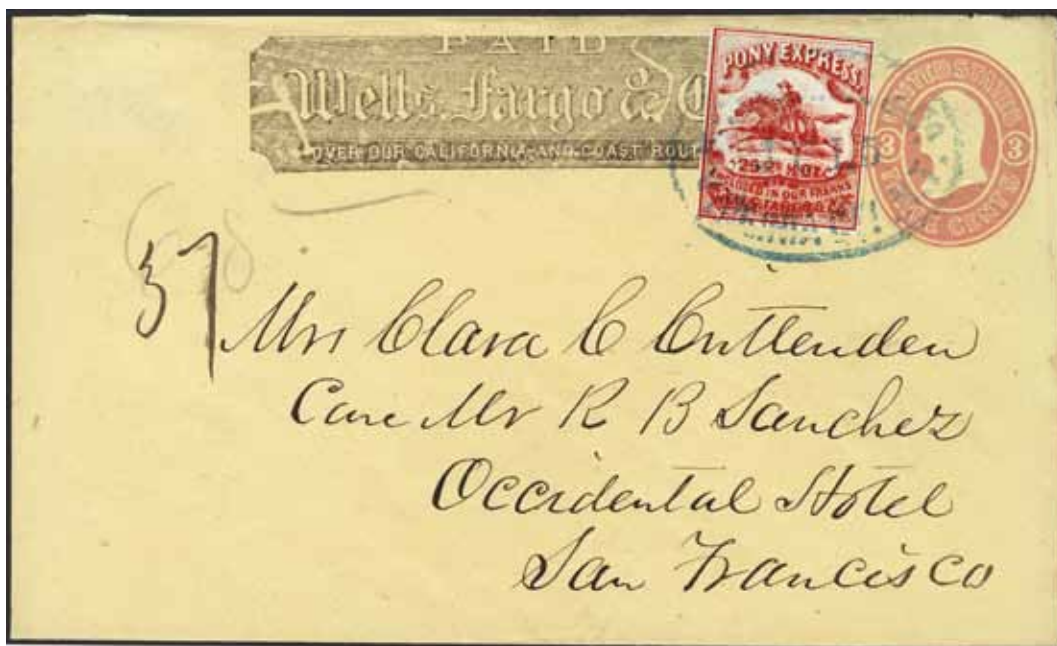 PAID
Wells, Fargo & C
OVER OUR CALIFORNIA AND COAST ROUT
PONY EXPRESS
25
ENCLOSED IN OUR FRANKS
WELLS, FARGO & Co.
UNITED STATES
3 3
THREE CENTS
37
Mrs Clara C Cruttenden
Care Mr R B Sanchez
Occidental Hotel
San Francisco